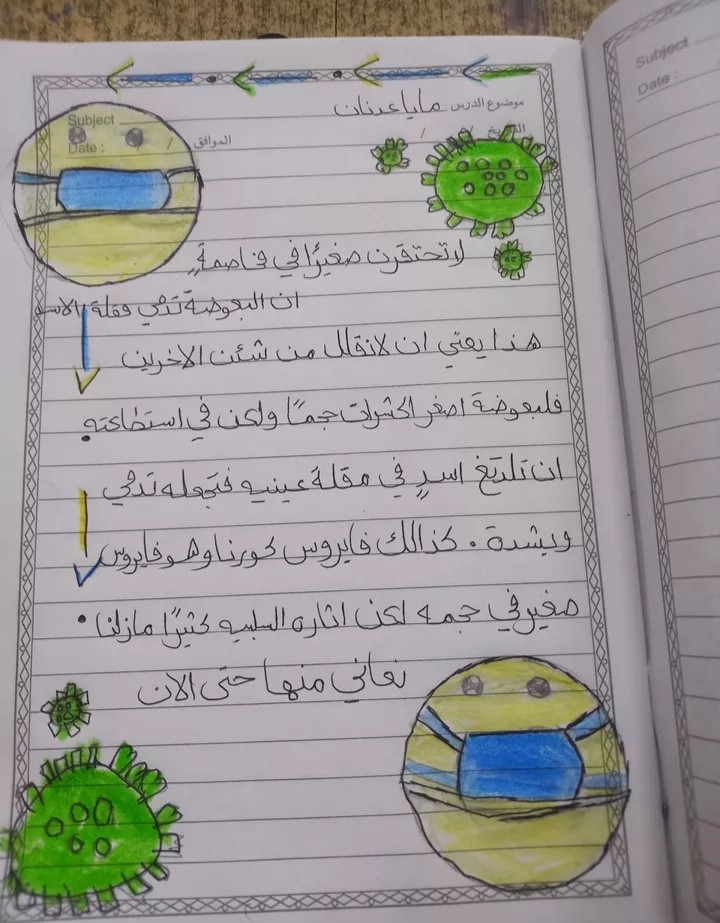 Subject
Date :
موضوع الدرس ماياعدنان
Subject
Date : / الموافق / التاريخ
لاتحتقرن صغيرًا في مخاصمةٍ
ان البعوضة تدمي مقلة الاسد
هذا يعني ان لانقلل من شئن الاخرين
فلبعوضة اصغر الحشرات حجمًا ولكن في استطاعته
ان تلدغ اسدٍ في مقلة عينيه فتجعله تدمي
وبشدة . كذالك فايروس كورنا وهو فايروس
صغير في حجمه لكن اثاره السلبيه كثيرًا مازلنا
نعاني منها حتى الان